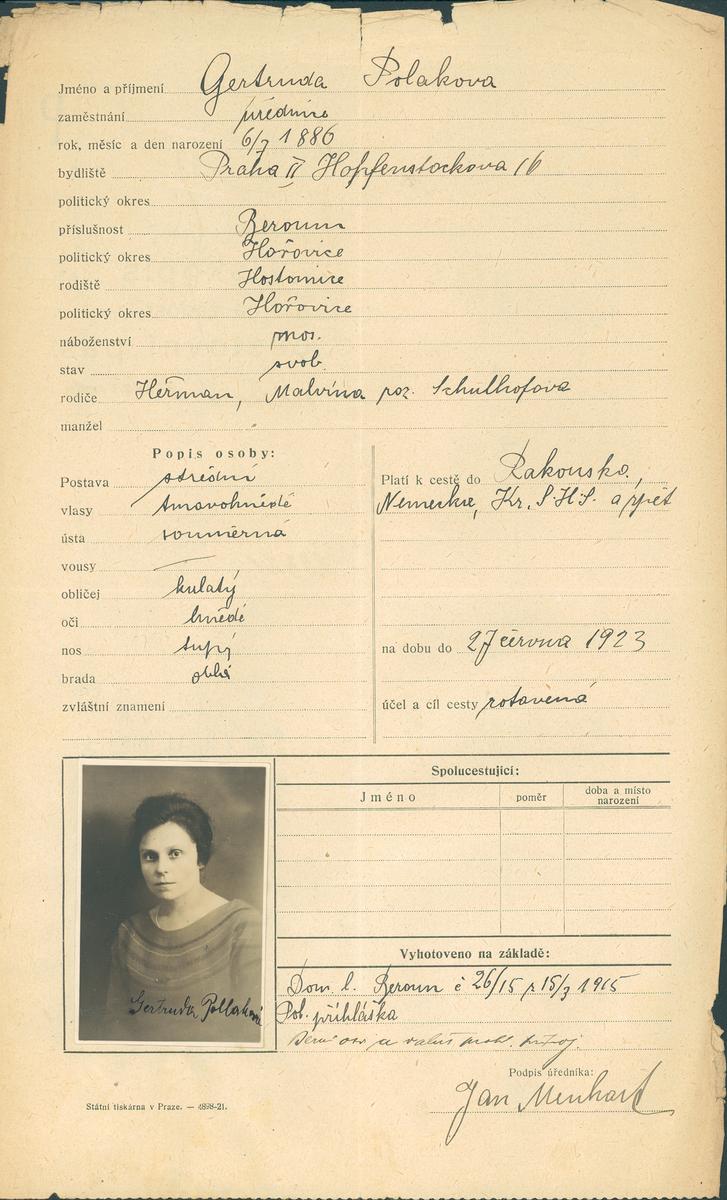 Jméno a příjmení Gertruda Polakova
zaměstnání úřednice
rok, měsíc a den narození 6/7 1886
bydliště Praha II Hopfenstockova 16
politický okres
příslušnost Beroun
politický okres Hořovice
rodiště Hostomice
politický okres Hořovice
náboženství mos.
stav svob.
rodiče Heřman, Malvína roz. Schulhofova
manžel
Popis osoby:
Postava střední
vlasy tmavohnědé
ústa souměrná
vousy —
obličej kulatý
oči hnědé
nos tupý
brada oblá
zvláštní znamení
Platí k cestě do Rakouska,
Německa, Kr. S.H.S. a zpět
na dobu do 27 června 1923
účel a cíl cesty zotavená
Spolucestující:
Jméno poměr doba a místo narození
Vyhotoveno na základě:
Dom. l. Beroun č 26/15 z 15/3 1915
Pol. přihláška
Gertruda Pollaková
Podpis úředníka:
Jan Menhart
Státní tiskárna v Praze. — 4898-21.